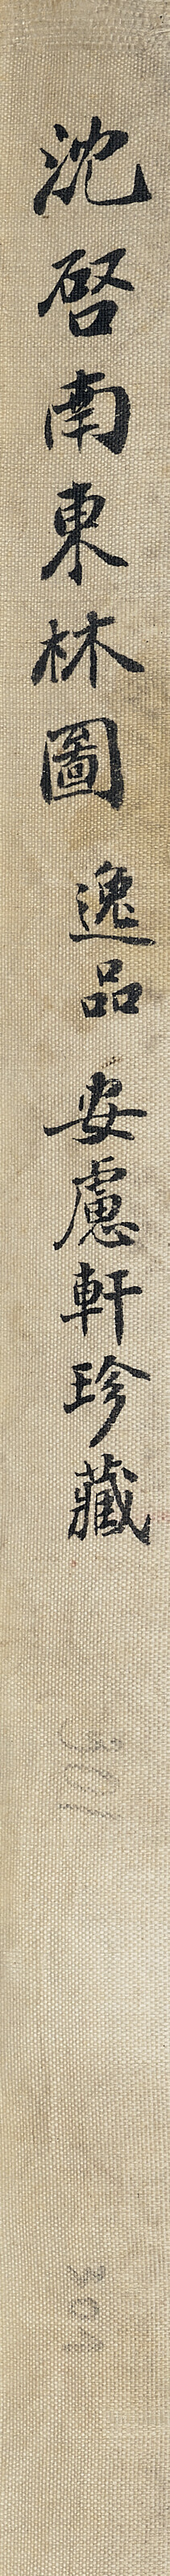 沈啓南東林圖 逸品 安慮軒珍藏
301
301